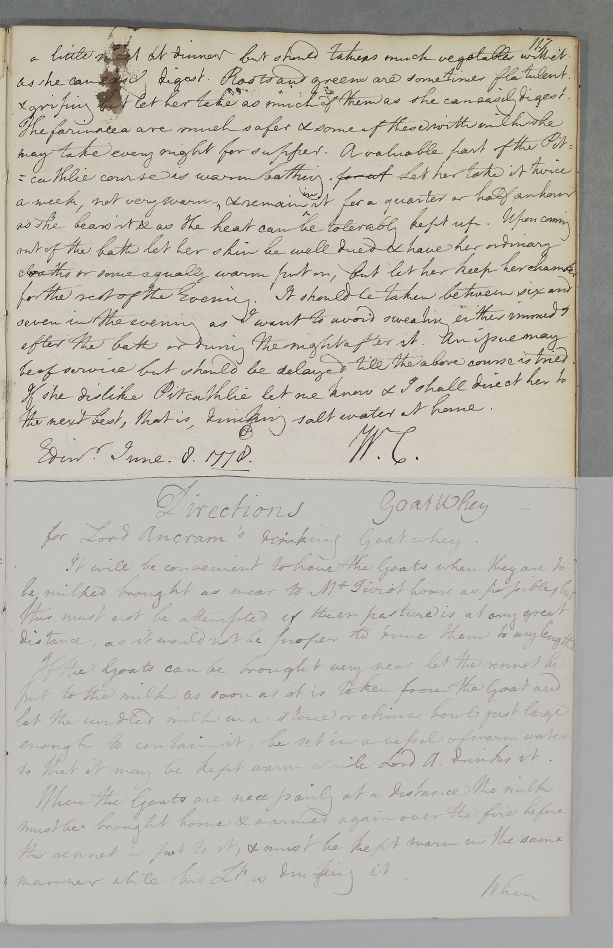 117
a little meat at dinner but should take as much vegetables with it
as she can easily digest. Roots and greens are sometimes flatulent
& griping but let her take as much of them as she can easily digest.
The farinacea are much safer & some of these with milk she
may take every night for supper. A valuable part of the Pit=
=caithlie course is warm bathing. for it Let her take it twice
a week, not very warm, & remain in it for a quarter or half an hour
as she bears it & as the heat can be tolerably kept up. When coming
out of the bath let her skin be well dried & have her ordinary
cloaths or some equally warm put on, but let her keep her chamber
for the rest of the Evening. It should be taken between six and
seven in the evening as I want to avoid sweating either immedy
after the bath or during the night after it. An issue may
be of service but should be delayed till the above course is tried
If she dislike Pitcaithlie let me know & I shall direct her to
the next best, that is, drinking salt water at home.
Edinr. June. 8. 1778. W. C.
Directions Goat Whey
for Lord Ancram's drinking Goat whey.
It will be convenient to have the Goats when they are to
be milked brought as near to Mt Tiviot house as possible, but
this must not be attempted if their pasture is at any great
distance, as it would not be proper to drive them to any length
If the Goats can be brought very near let the rennet be
put to the milk as soon as it is taken from the Goat and
let the curdled milk in a stone or china bowl just large
enough to contain it, be set in a vessel of warm water
so that it may be kept warm while Lord A. drinks it.
When the Goats are necessarily at a distance the milk
must be brought home & warmed again over the fire before
the rennet is put to it, & must be kept warm in the same
manner while his Lp is drinking it.
When